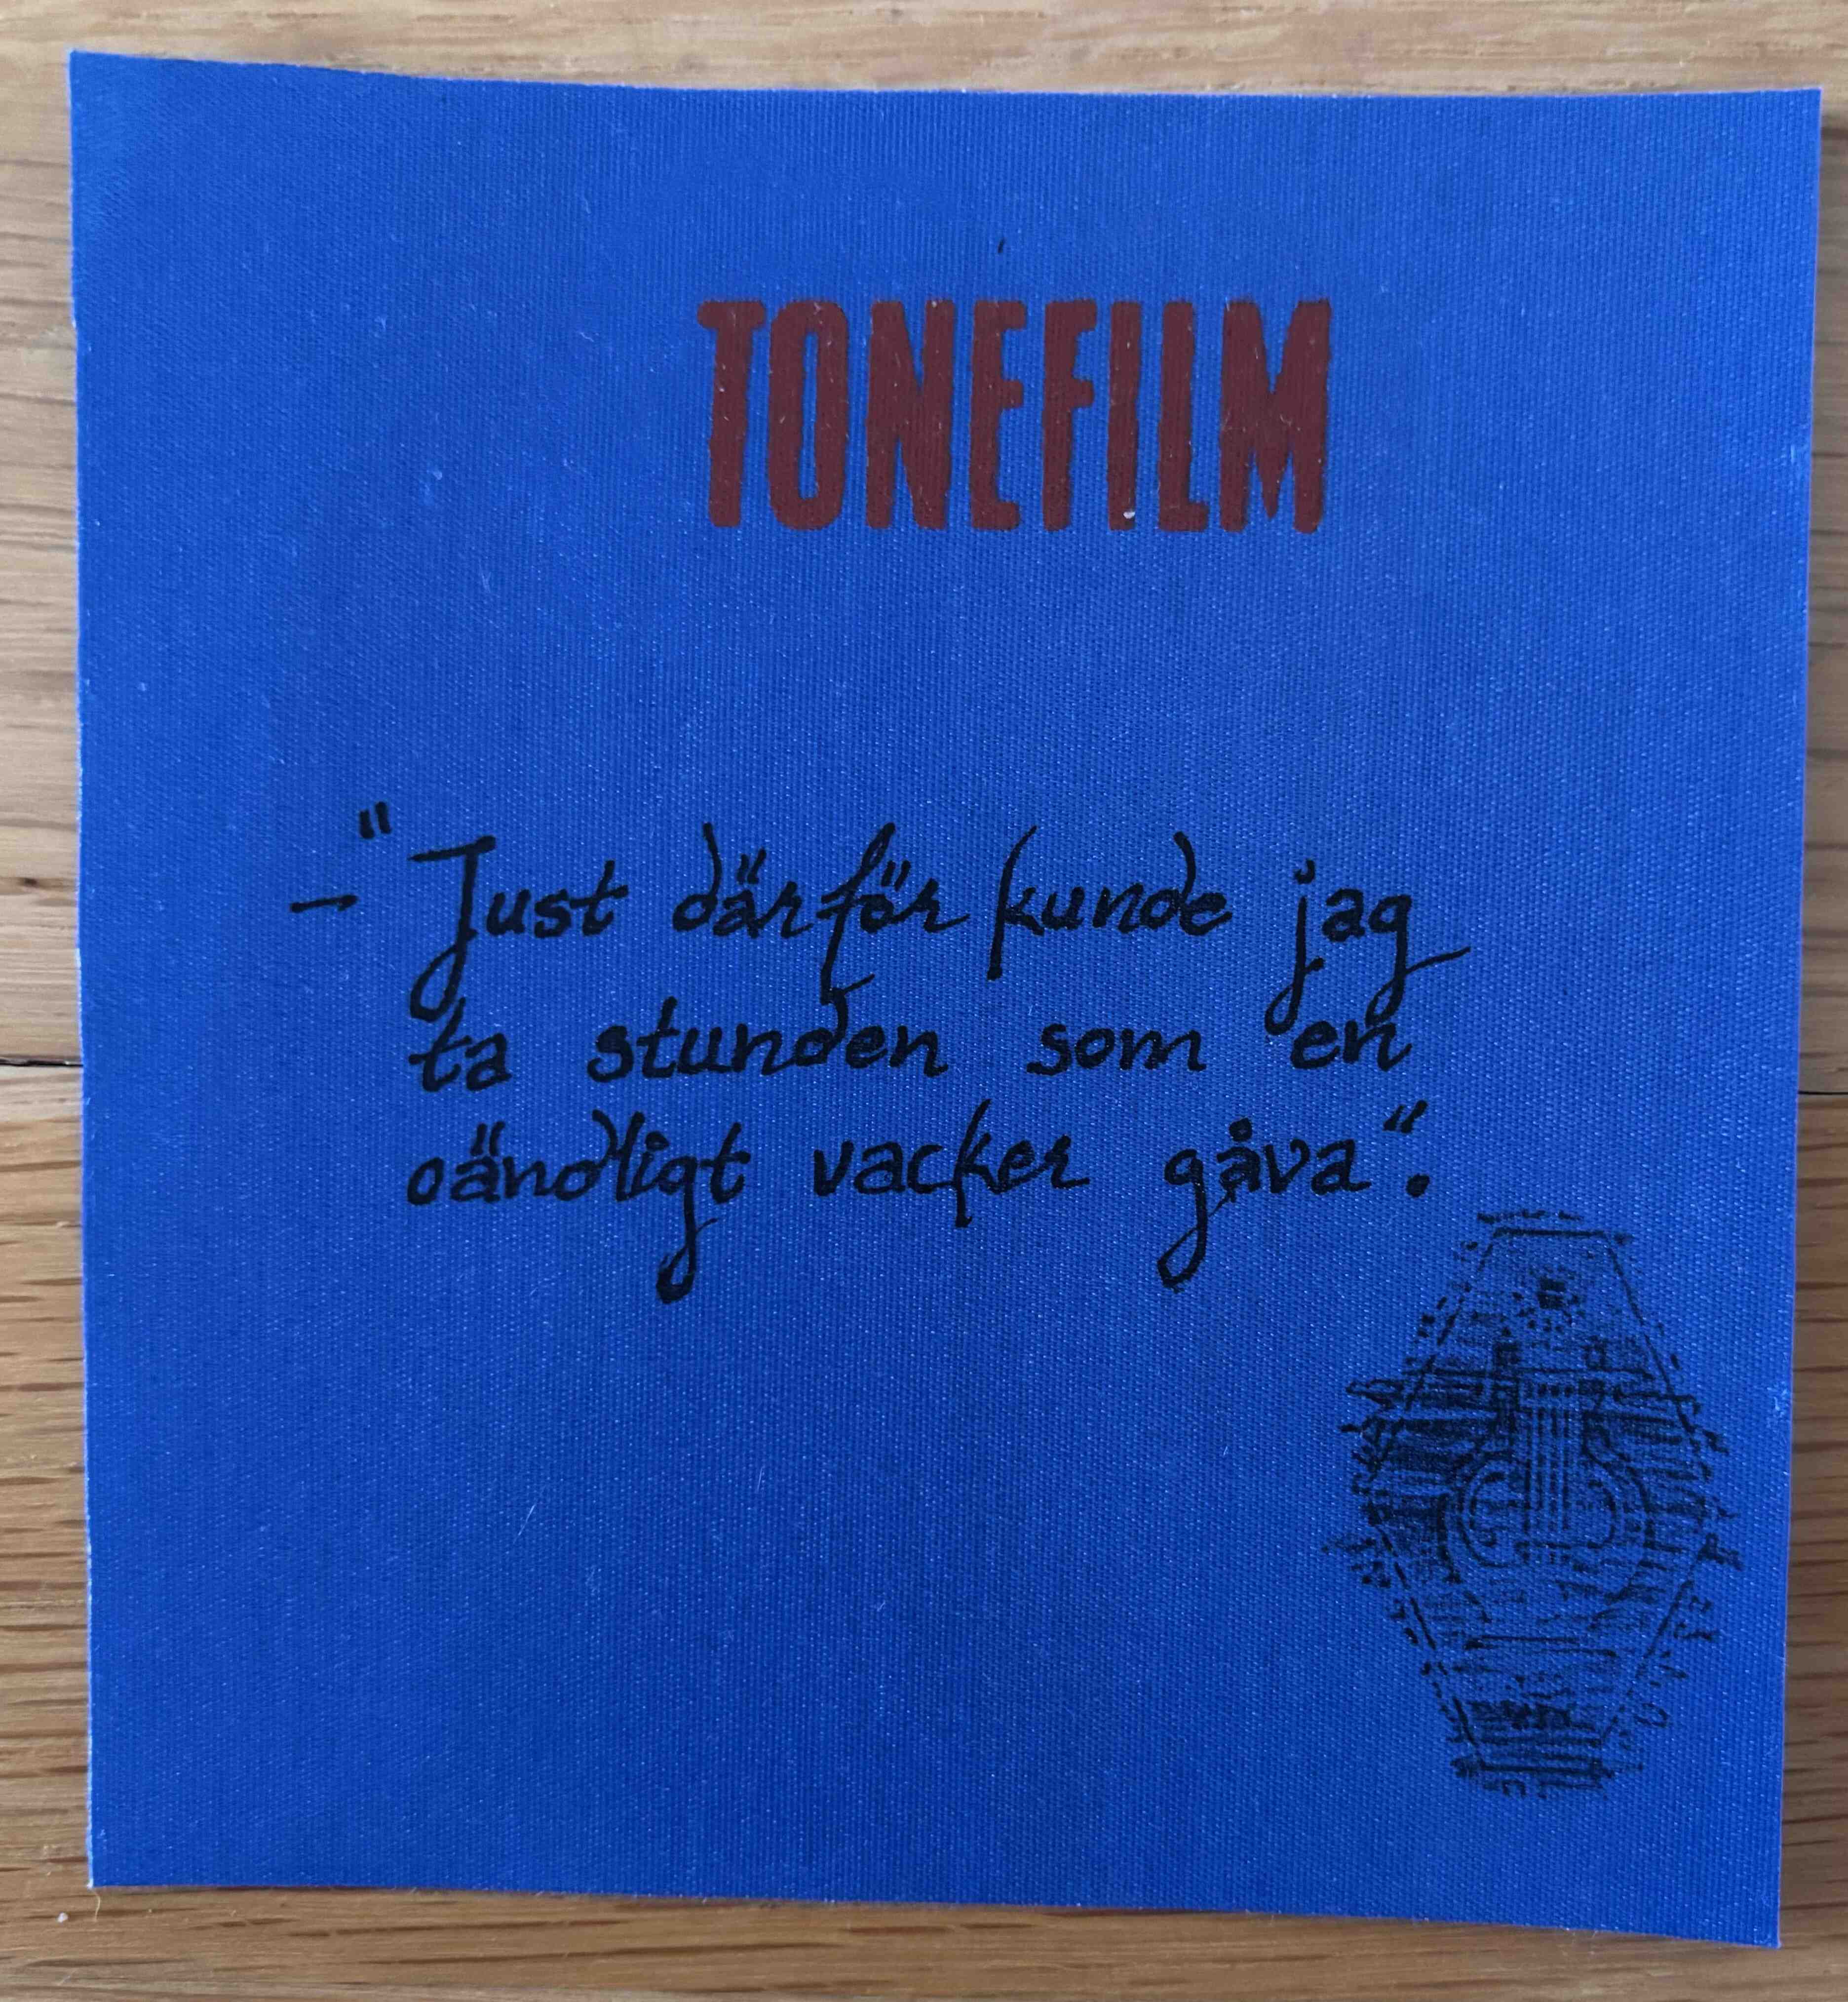 TONEFILM
– "Just därför kunde jag
ta stunden som en
oändligt vacker gåva".